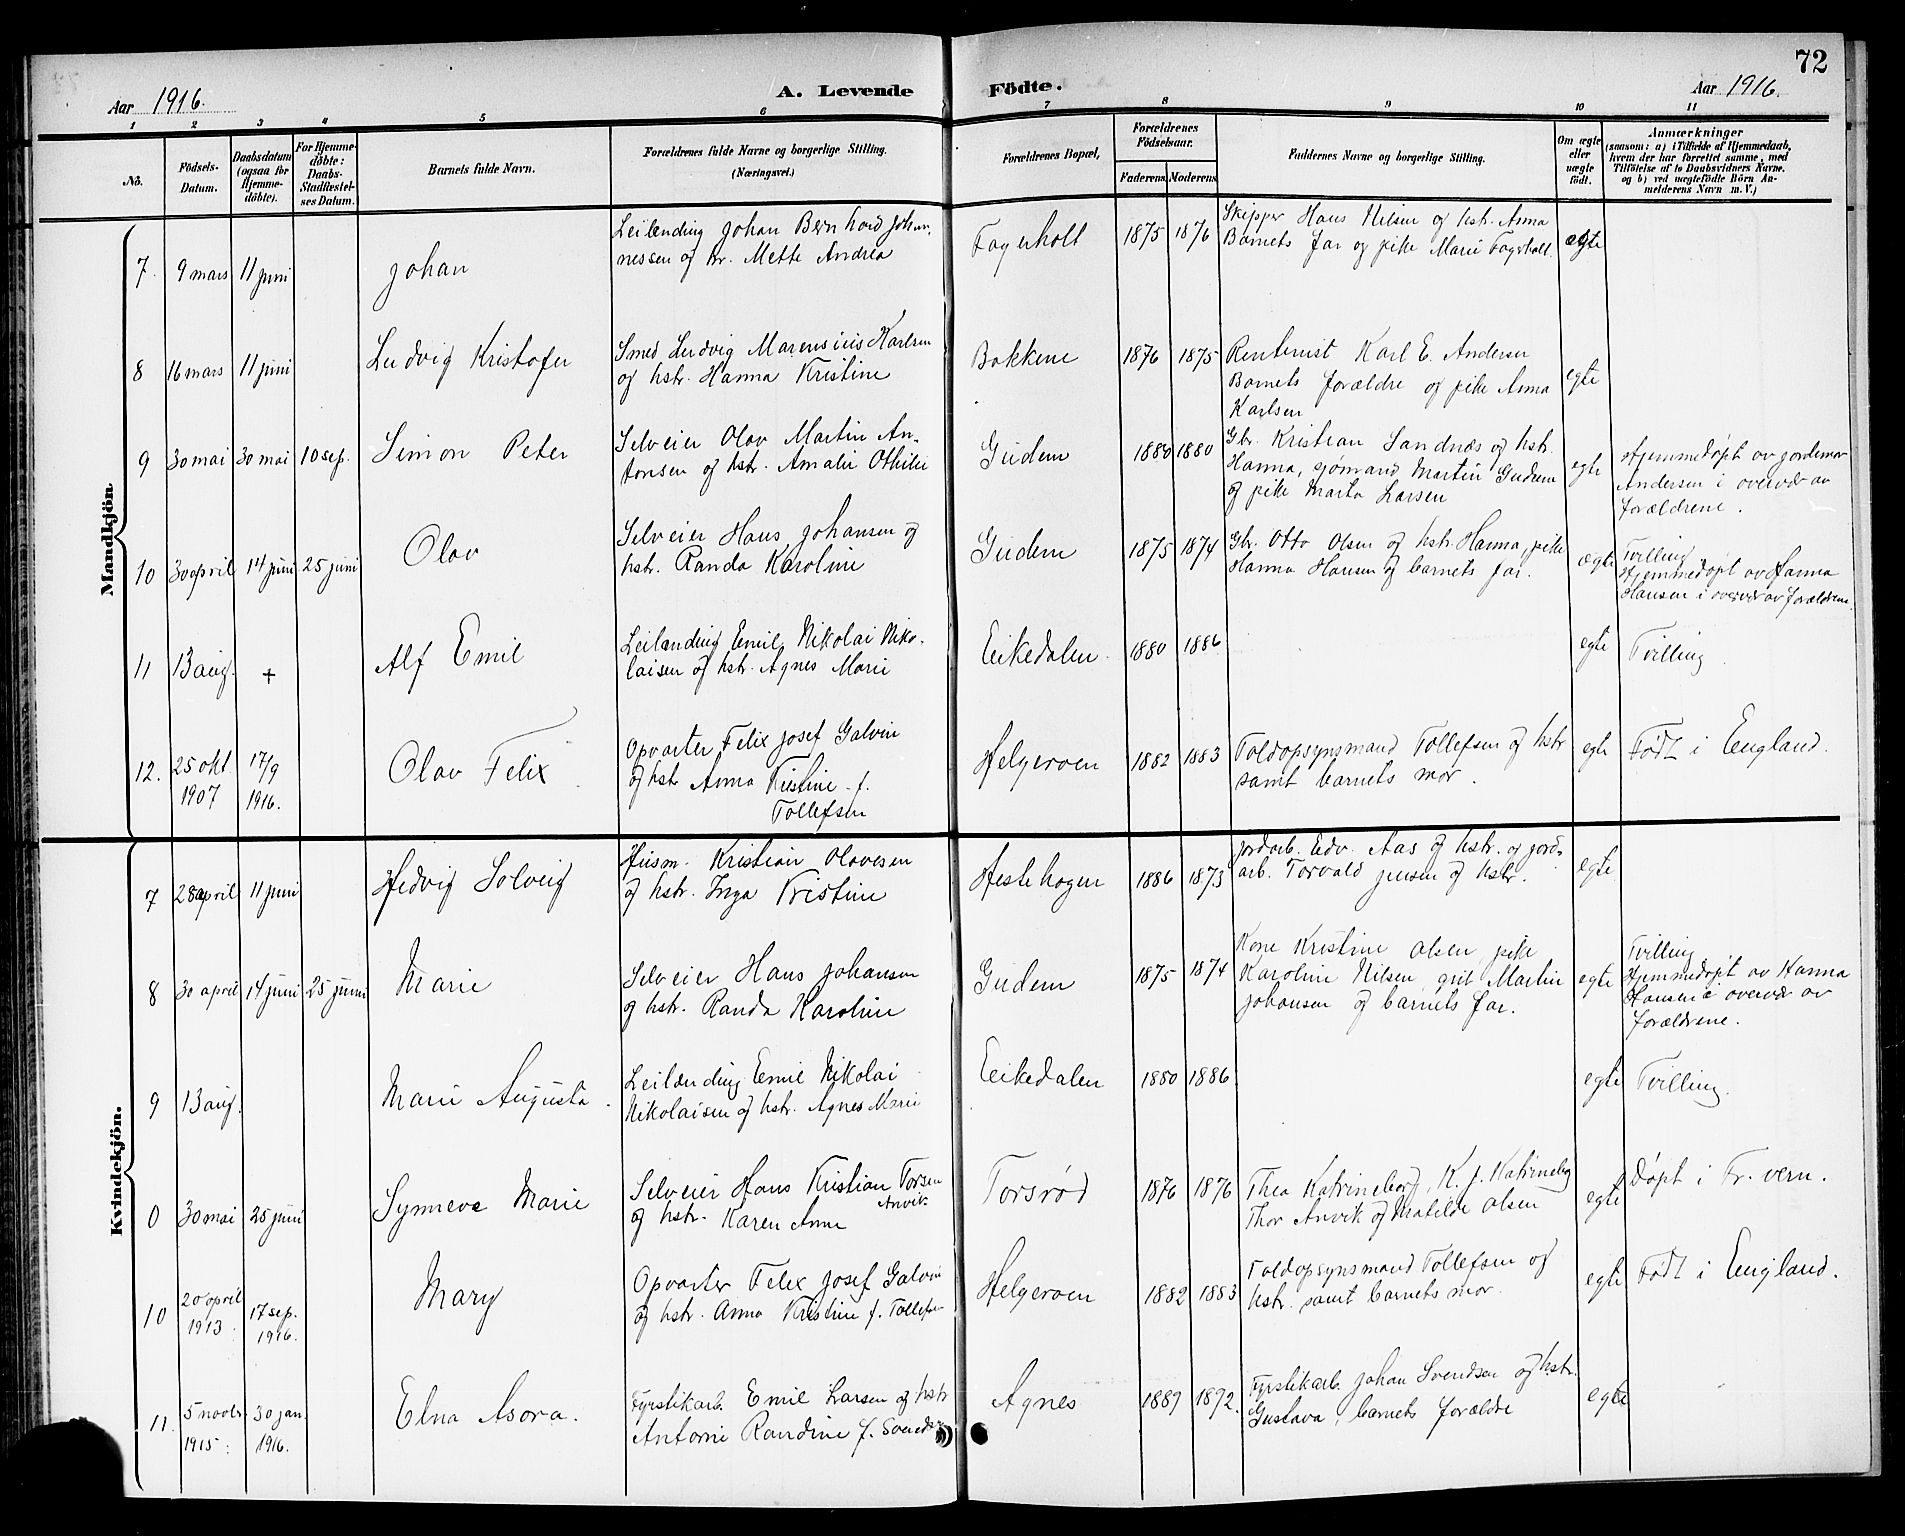 72
Aar 1916. A. Levende Födte. Aar 1916.
1 2 3 4 5 6 7 8 9 10 11
No. Födsels-Datum. Daabsdatum (ogsaa for Hjemme-döbte). For Hjemme-döbte: Daabs-Stadfæstel-ses Datum. Barnets fulde Navn. Forældrenes fulde Navne og borgerlige Stilling. (Næringsvei.) Forældrenes Bopæl, Forældrenes Födselsaar. Faderens Moderens Faddernes Navne og borgerlige Stilling. Om ægte eller uægte födt. Anmærkninger
(saasom: a) i Tilfælde af Hjemmedaab,
hvem der har forrettet samme, med
Tilföielse af to Daabsvidners Navne.
og b) ved uægtefödte Börn An-
melderens Navn m. V.)
Mandkjön
7. 9 mars 11 juni Johan
Leilending Johan Bernhard Johan-
nessen og hr. Mette Andrea
Fagerholt 1875 1876
Skipper Hans Nilsen og hstr. Anna
Barnets far og pike Marie Fagerholt.
ægte
8 16 mars 11 juni Ludvig Kristofer
Smed Ludvig Marensius Karlsen
og hstr. Hanna Kristine
Bakkene 1876 1875
Rentenist Karl E. Andersen
Barnets forældre og pike Anna
Karlsen
egte
9 30 mai 30 mai 10 sep. Simon Peter
Selveier Olav Martin An-
tonsen og hstr. Amalie Othilie
Gudem 1880 1880
Gbr. Kristian Sandnæs og hstr.
Hanna, sjømand Martin Gudem
og pike Marta Larsen
egte
Hjemmedøpt av jordemor
Andersen i overvær av
forældrene.
10 30 april 14 juni 25 juni Olav
Selveier Hans Johansen og
hstr. Randa Karoline
Gudem 1875 1874
Gbr. Otto Olsen og hstr. Hanna, pike
Hanna Hansen og barnets far.
ægte
Tvilling
Hjemmedøpt av Hanna
Hansen i overvær av forældrene.
11 13 aug. + Alf Emil
Leilænding Emil Nikolai Niko-
laisen og hstr. Agnes Marie
Eikedalen. 1880 1886
egte Tvilling
12. 25 okt. 1907 17/9 1916. Olav Felix
Opvarter Felix Josef Galvin
og hstr Anna Kristine f.
Tollefsen
Helgeroen 1882 1883
Toldopsynsmand Tollefsen og hstr
samt barnets mor.
egte Født i England.
Kvindekjön.
7 28 april 11 juni Hedvig Solveig
Husm. Kristian Olavesen
og hstr. Inga Kristine
Hestehagen 1886 1873
Jordarb. Edv. Aas og hstr. og jord-
arb. Torvald Jensen og hstr.
egte
8 30 april 14 juni 25 juni Marie
Selveier Hans Johansen
og hstr. Randa Karoline
Gudem 1875 1874
Kone Kristine Olsen, pike
Karoline Nilsen, gut Martin
Johansen og barnets far.
egte
Tvilling
Hjemmedøpt av Hanna
Hansen i overvær av
forældrene.
9 13 aug. Marie Augusta.
Leilænding Emil Nikolai
Nikolaisen og hstr. Agnes Marie
Eikedalen 1880 1886
egte Tvilling.
0 30 mai 25 juni Synneve Marie
Selveier Hans Kristian Torsen
Anvik.
og hstr. Karen Anne
Torsrød 1876 1876
Thea Katrineborg, K. J. Katrineborg
Thor Anvik og Matilde Olsen
egte Døpt i Fr. vern.
10 20 april 1913 17 sep. 1916. Mary
Opvarter Felix Josef Galvin
og hstr. Anna Kristine f. Tollefsen
Helgeroen 1882 1883
Toldopsynsmand Tollefsen og
hstr. samt barnets mor.
egte Født i England.
11. 5 novbr. 1915. 30 jan. 1916. Elna Asora.
Fyrstikarb. Emil Larsen og hstr
Antonie Randine f. Svends
Agnes 1889 1892.
Fyrstikarb. Johan Svendsen og hstr.
Gustava, barnets forældre
egte